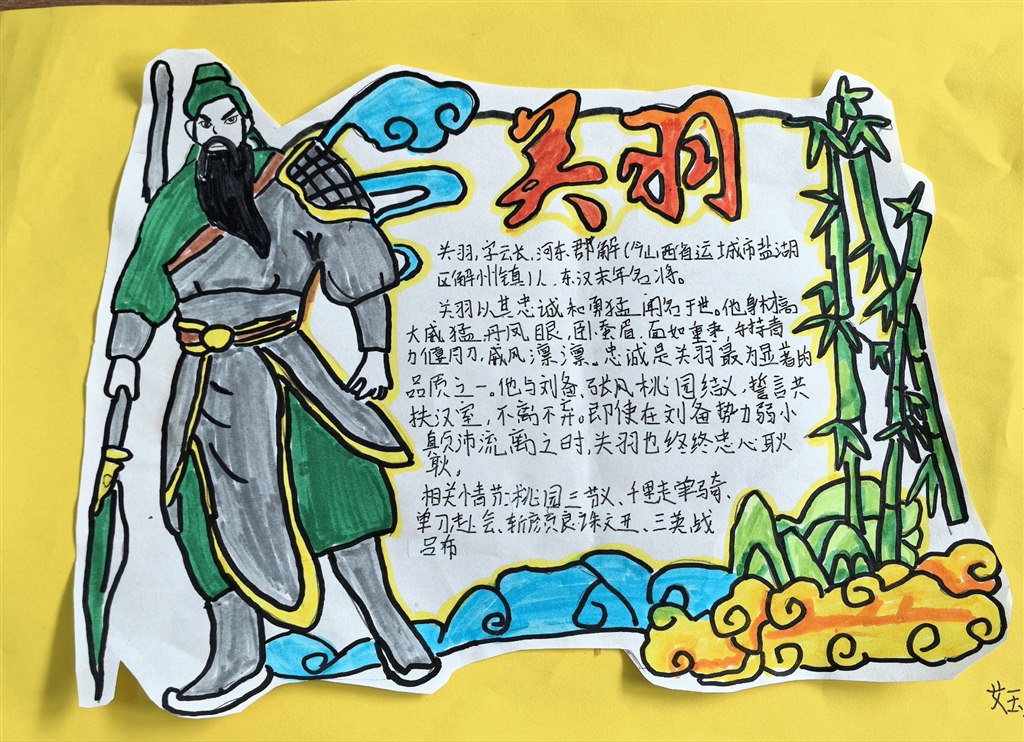 关羽
关羽,字云长,河东郡解(今山西省运城市盐湖
区解州镇)人,东汉末年名将。
关羽以其忠诚和勇猛闻名于世。他身材高
大威猛,丹凤眼,卧蚕眉,面如重枣,手持青
刀偃月刀,威风漂漂。忠诚是关羽最为显著的
品质之一。他与刘备、张风桃园结义,誓言共
扶汉室,不离不弃。即使在刘备势力弱小
颠沛流离之时,关羽也终终忠心耿
耿。
相关情节:桃园三结义、千里走单骑、
单刀赴会、斩颜良诛文丑、三英战
吕布